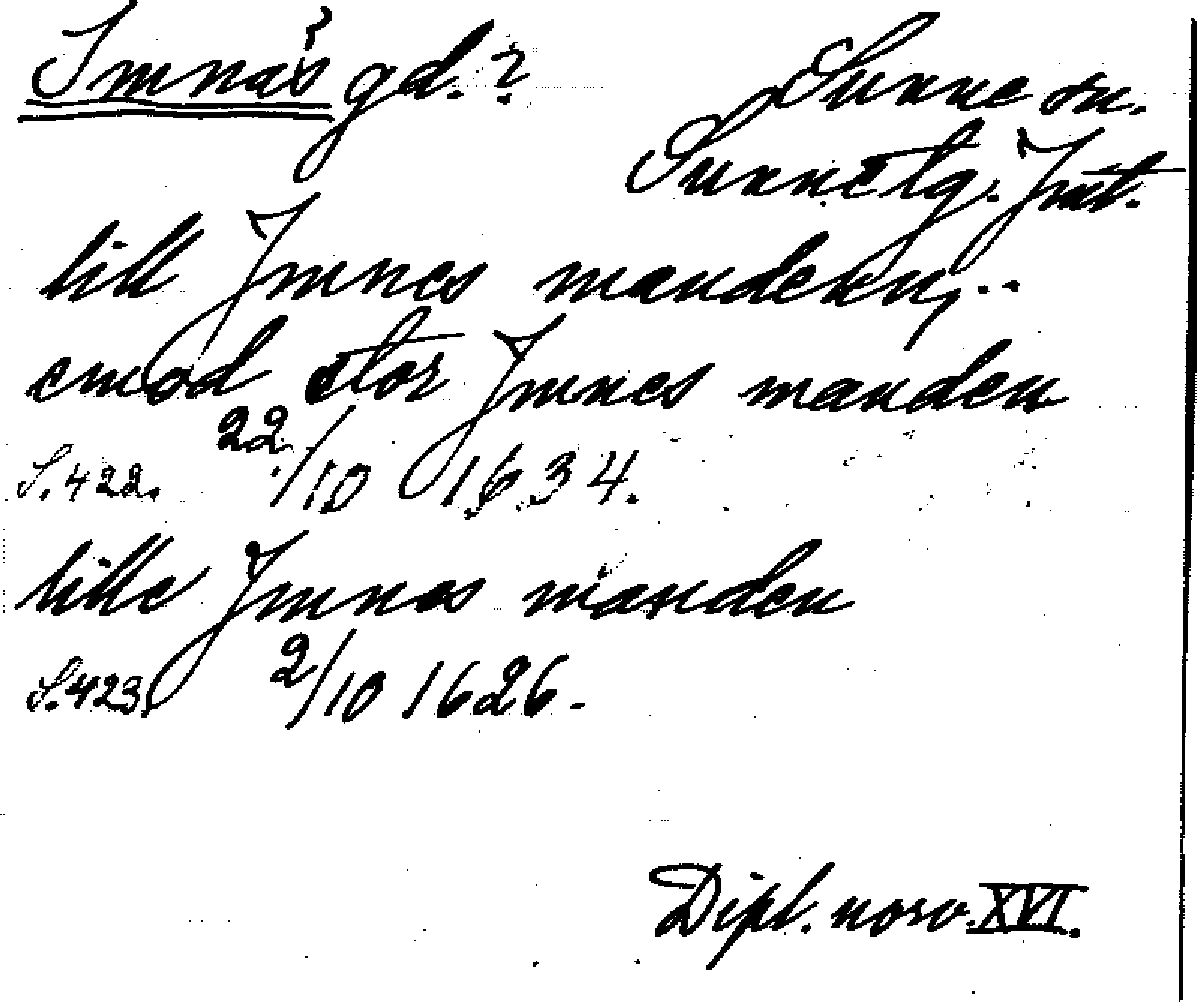 Imnäs gd.?
Sunne sn.
Sunne tg. Jmt.
lill Jmnes manden, ..
emod stor Jmnes manden
S. 422. 22/10 1634.
lille Jmnes manden
S. 423. 2/10 1626.
Dipl. norv. XVI.